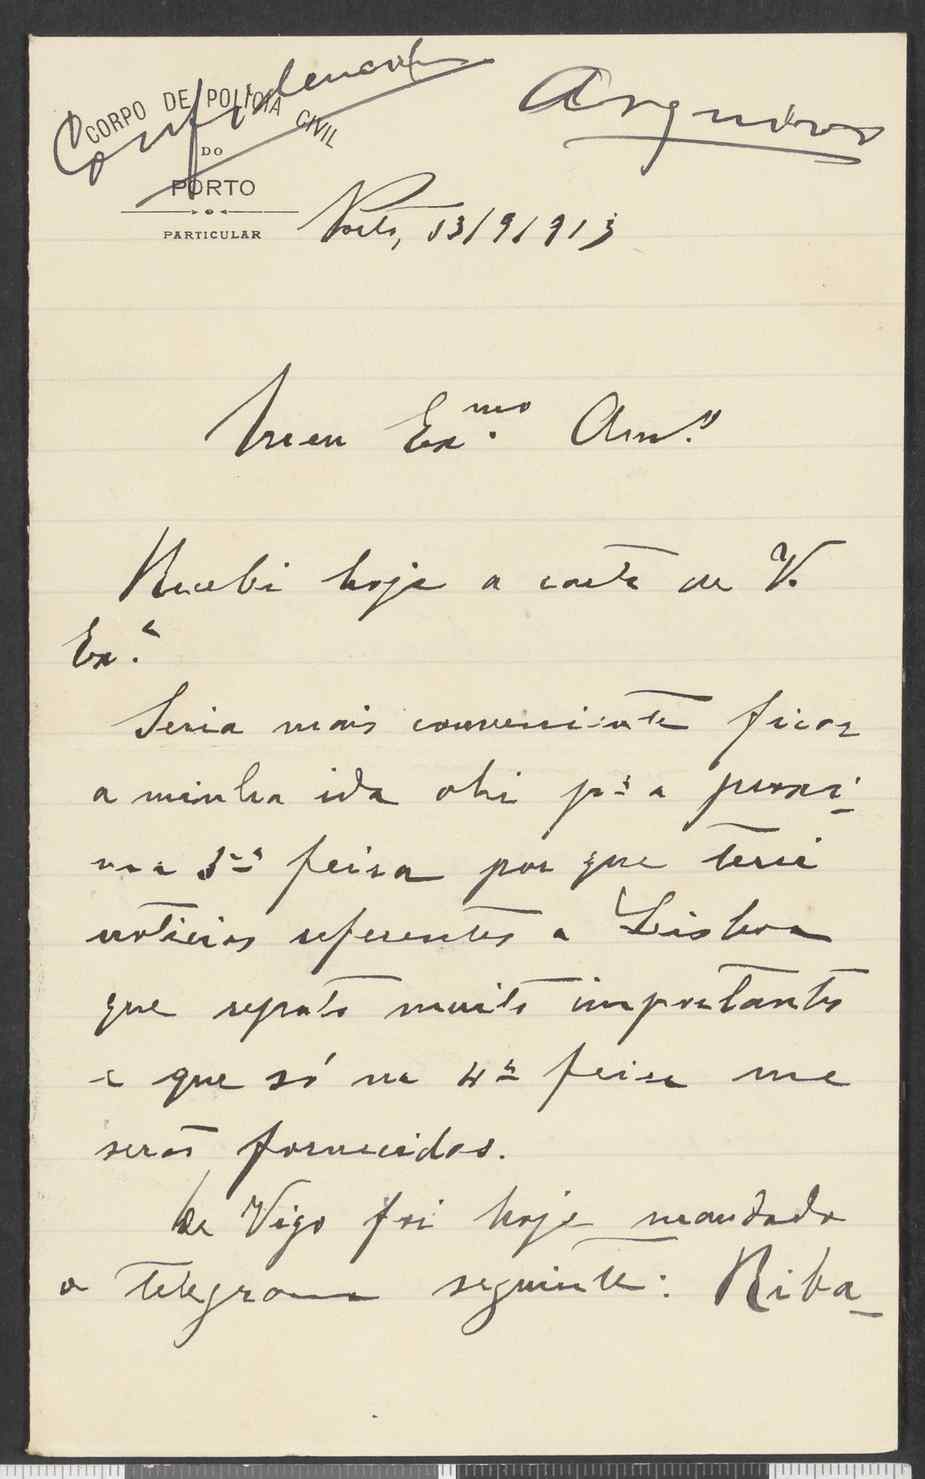 Confidencial
Arquivos
CORPO DE POLICIA CIVIL
DO
PORTO
PARTICULAR
Porto, 13/9/913
Meu Ex.mo Am.o
Recebi hoje a carta de V.
Ex.a
Seria mais conveniente ficar
a minha ida ahi p.a a proxi-
ma 3.a feira por que terei
noticias referentes a Lisboa
que reputo muito importantes
e que só na 4.a feira me
serão fornecidas.
De Vigo foi hoje mandado
o telegrama seguinte: Riba-